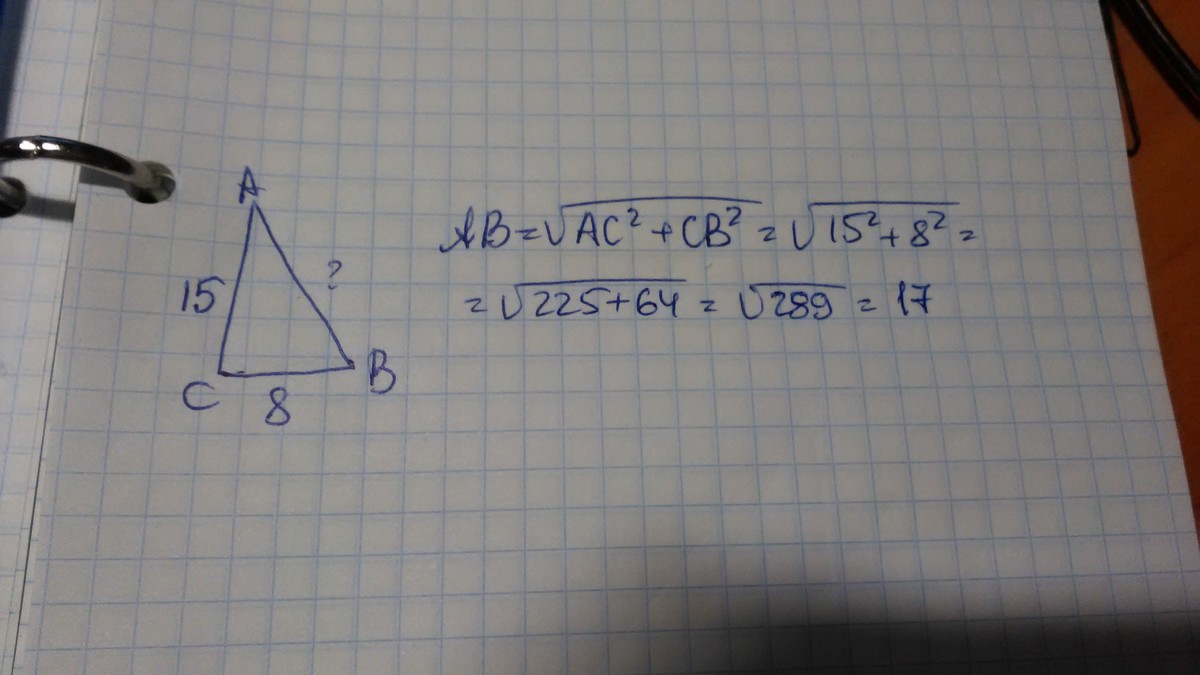 A
15
?
C
8
B
AB=√AC²+CB² = √15²+8² =
= √225+64 = √289 = 17